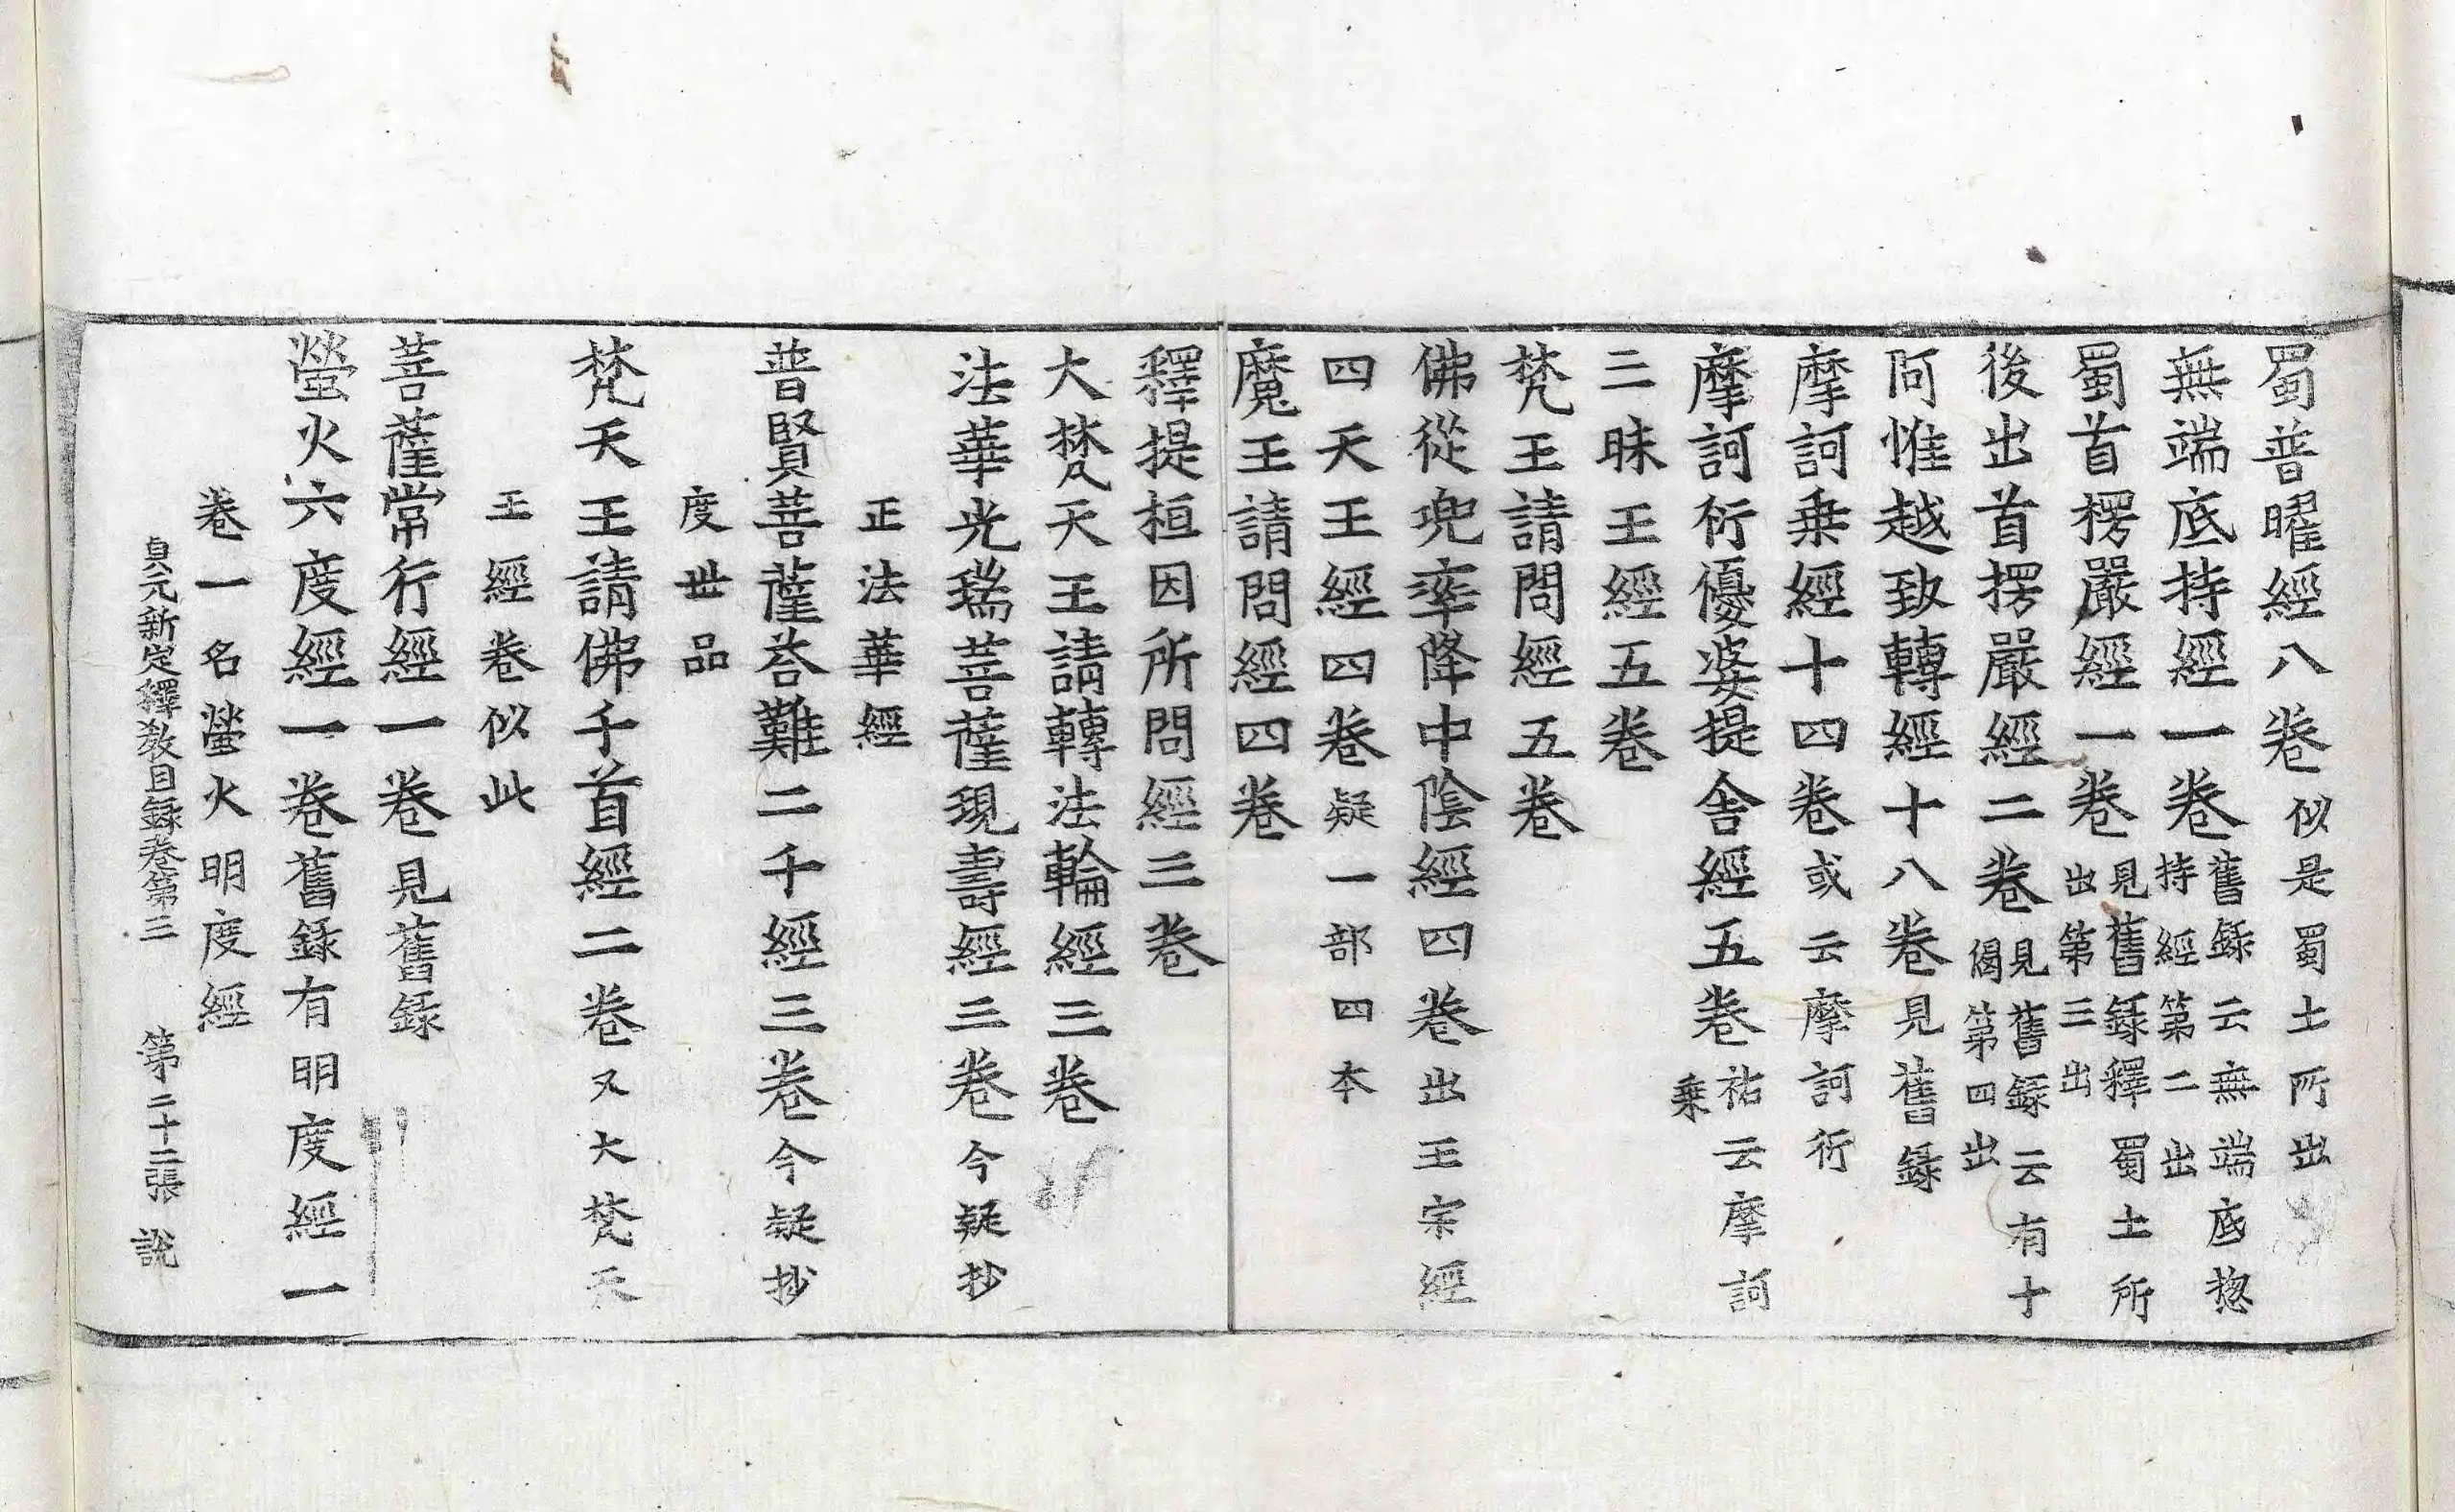 蜀普曜經八卷似是蜀土所出
無端底持經一卷舊錄云無端底揔持經第二出
蜀首楞嚴經一卷見舊錄釋蜀土所出第三出
後出首楞嚴經二卷見舊錄云有十偈第四出
阿惟越致轉經十八卷見舊錄
摩訶乗經十四卷或云摩訶衍
摩訶衍優婆提舍經五卷祐云摩訶乗
三昧王經五卷
梵王請問經五卷
佛從兜率降中陰經四卷出王宗經
四天王經四卷疑一部四本
魔王請問經四卷
釋提桓因所問經三卷
大梵天王請轉法輪經三卷
法華光瑞菩薩現壽經三卷今疑抄
正法華經
普賢菩薩荅難二千經三卷今疑抄
度世品
梵天王請佛千首經二卷又大梵天
王經卷似此
菩薩常行經一卷見舊錄
螢火六度經一卷舊錄有明度經一
卷一名螢火明度經
貞元新定釋教目録卷第三 第二十二張 說